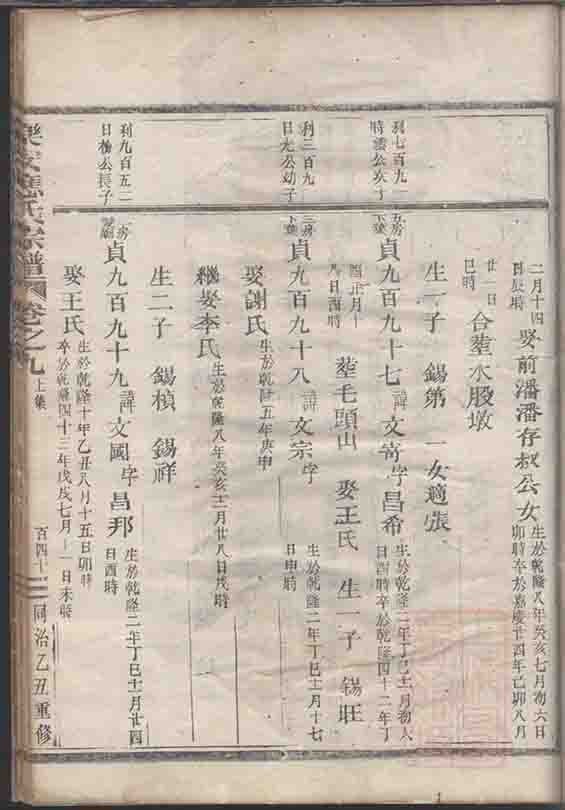 二月十四日辰時
娶前潘潘存叔公女
生於乾隆八年癸亥七月初六日
卯時卒於嘉慶廿四年己卯八月
廿一日巳時
合葬水股墩
生一子 錫第 一女適張
利七百九一
時 公次子
五房下葉
貞九百九十七 諱文寄字昌希
生於乾隆二年丁巳十一月初八
日酉時卒於乾隆四十二年丁
酉正月十八日酉時
葬毛頭山 娶王氏 生一子 錫旺
利三百九一
日尤公幼子
三房下葉
貞九百九十八 諱文宗字
生於乾隆二年丁巳十一月十七
日申時
娶謝氏 生於乾隆五年庚申
繼娶李氏 生於乾隆八年癸亥十二月廿八日戌時
生二子 錫楨 錫祥
利九百五二
日楊公長子
房
貞九百九十九 諱文國字昌邦
生於乾隆二年丁巳十二月廿四
日酉時
娶王氏
生於乾隆十年乙丑八月十五日卯時
卒於乾隆四十三年戊戌七月十一日未時
樂安 氏宗譜 卷之九 上集
百四十 同治乙丑重修